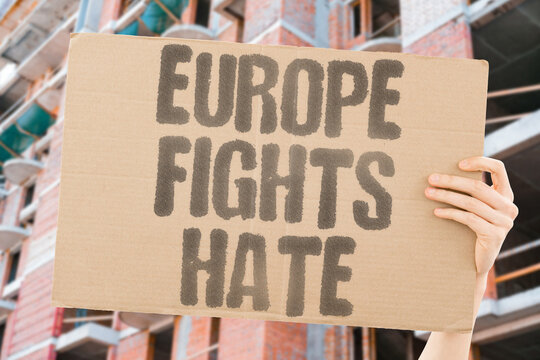 EUROPE
FIGHTS
HATE